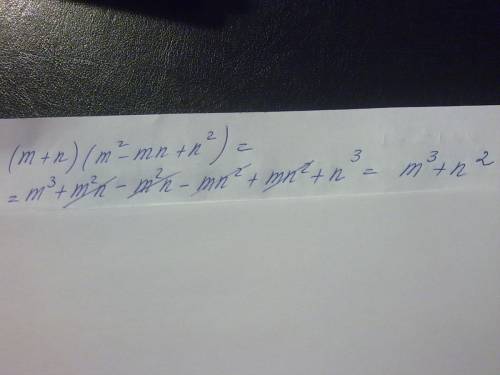 (m+n)(m²-mn+n²)=
=m³+m²n-m²n-mn²+mn²+n³= m³+n²